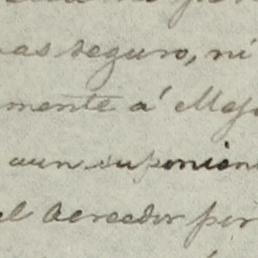 as seguro, ni
mente á
aun suponien
el Acreedor por